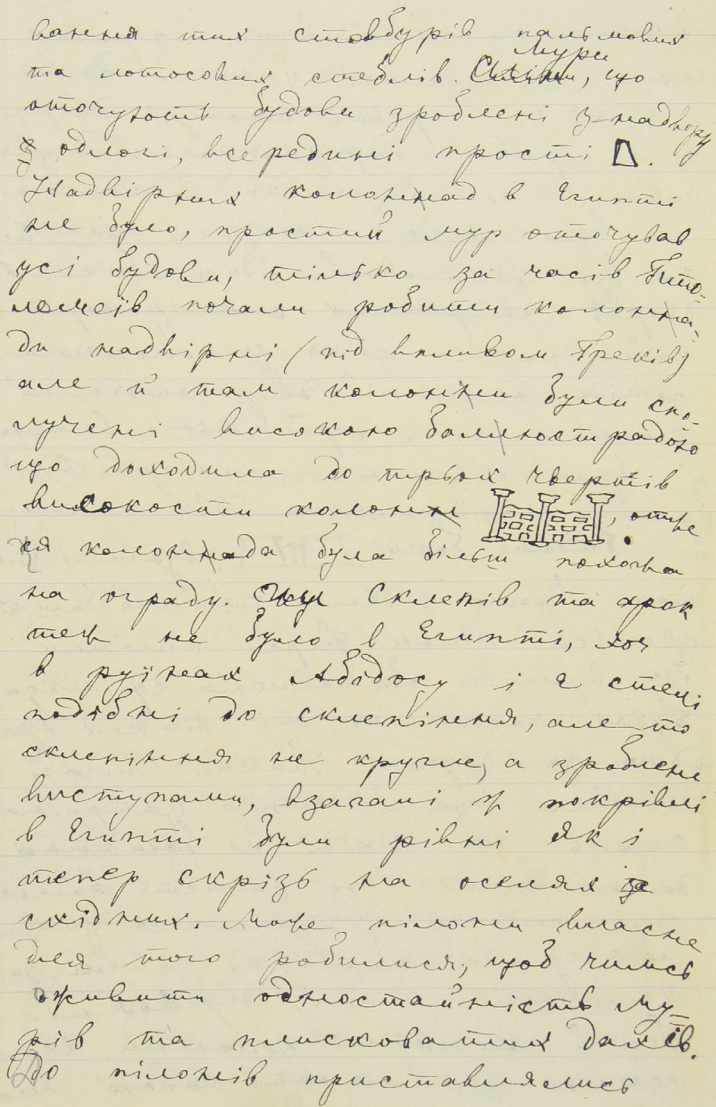 вання тих стовбурів пальмових
та лотосових стеблів. Мури, що
оточують будови зроблені з надвору
одлогі, всередині прості
Надвірних колонад в Египті
не було, простий мур оточував
усі будови, тілько за часів Пто-
лемеїв почали робити колона-
ди надвірні (під впливом Греків)
але й там колони були спо-
лучені високою балюстрадою
що доходила до трьох чвертів
високости колон, отже
ся колонада була більш похожа
на ограду. Склепів та арок
теж не було в Египті, хоч
в руїнах Абідосу і є стелі
подібні до склепіння, але то
склепіння не кругле, а зроблене
виступами, взагалі ж покрівлі
в Египті були рівні як і
тепер скрізь на оселях
східних. Може пілони власне
для того робилися, щоб чимсь
оживити одностайність му-
рів та плисковатих дахів.
До пілонів приставлялись